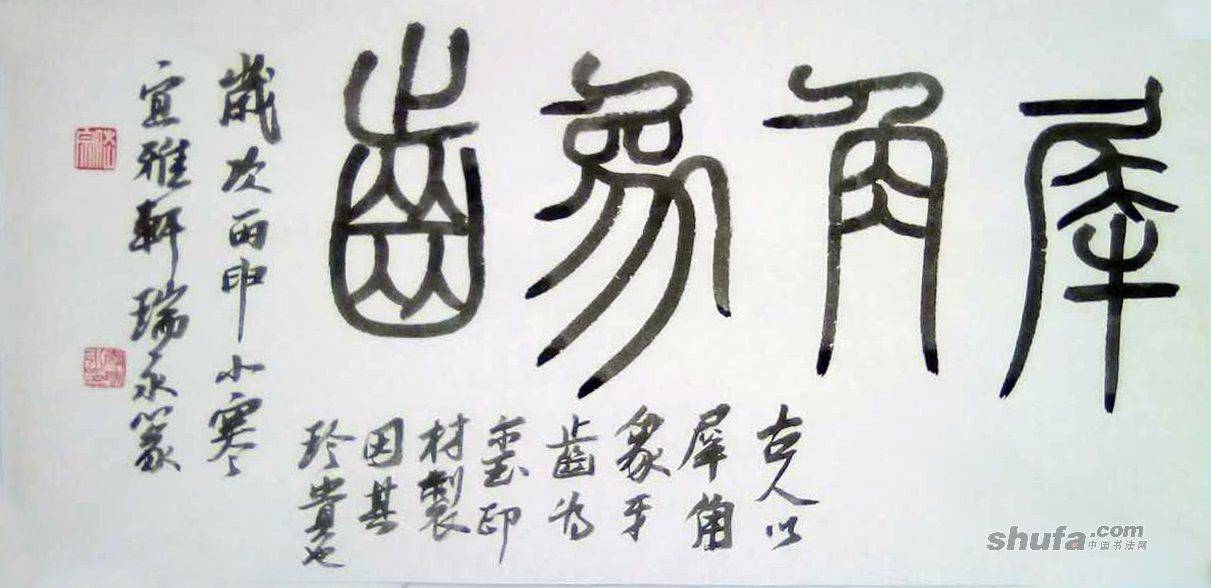 犀角象齒
古人以
犀角
象牙
齒为
璽印
材製
因其
珍貴也
歲次丙申小寒
宜雅軒瑞永篆
shufa.com
中国书法网